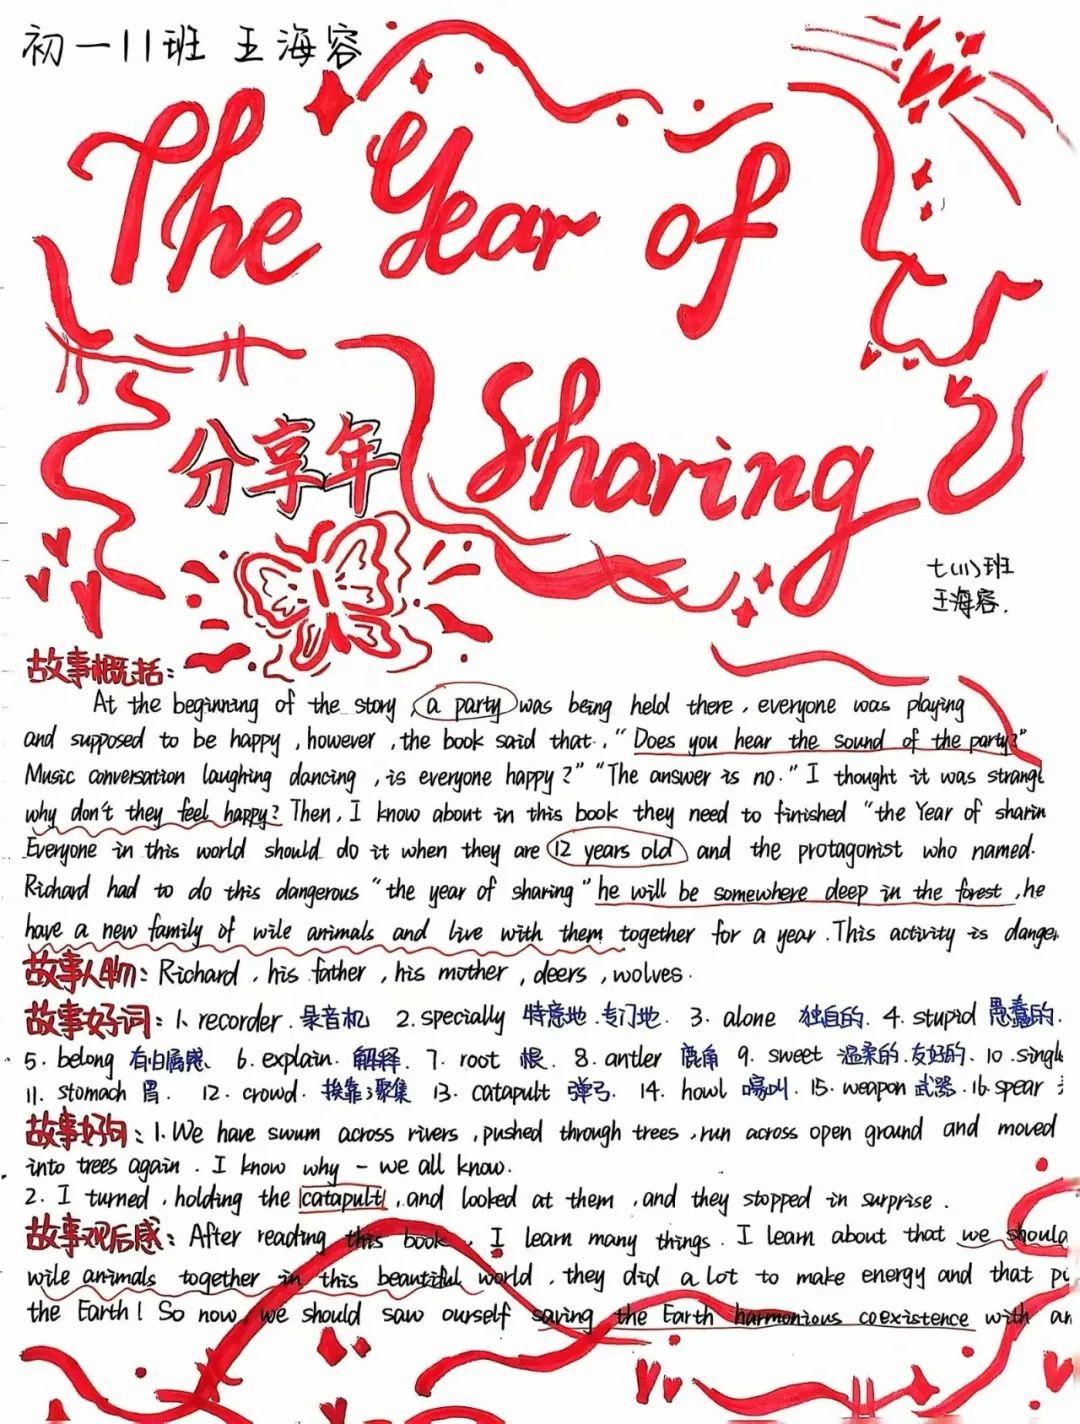 初一11班 王海容
The Year of
Sharing
分享年
七(11)班
王海容.
故事概括:
At the beginning of the story , a party was being held there , everyone was playing
and supposed to be happy , however , the book said that , " Does you hear the sound of the party?"
Music conversation laughing dancing , is everyone happy ? " " The answer is no . " I thought it was strange
why don't they feel happy? Then , I know about in this book they need to finished " the Year of sharin
Everyone in this world should do it when they are 12 years old and the protagonist who named.
Richard had to do this dangerous " the year of sharing " he will be somewhere deep in the forest , he
have a new family of wile animals and live with them together for a year . This activity is danger
故事人物: Richard , his father , his mother , deers , wolves .
故事好词: 1. recorder . 录音机 2. specially 特意地 . 专门地 . 3. alone 独自的 . 4. stupid 愚蠢的 .
5. belong 有归属感 . 6. explain . 解释 . 7. root 根 . 8. antler 鹿角 9. sweet 温柔的 . 友好的 . 10 . single
11. stomach 胃 . 12. crowd . 挨靠;聚集 13. catapult 弹弓 . 14. howl 嚎叫 . 15. weapon 武器 . 16. spear
故事好句: 1. We have swum across rivers , pushed through trees , run across open ground and moved
into trees again . I know why - we all know .
2. I turned , holding the catapult , and looked at them , and they stopped in surprise .
故事观后感: After reading this book , I learn many things . I learn about that we should
wile animals together in this beautiful world , they did a lot to make energy and that
the Earth ! So now we should saw ourself saving the Earth harmonious coexistence with an